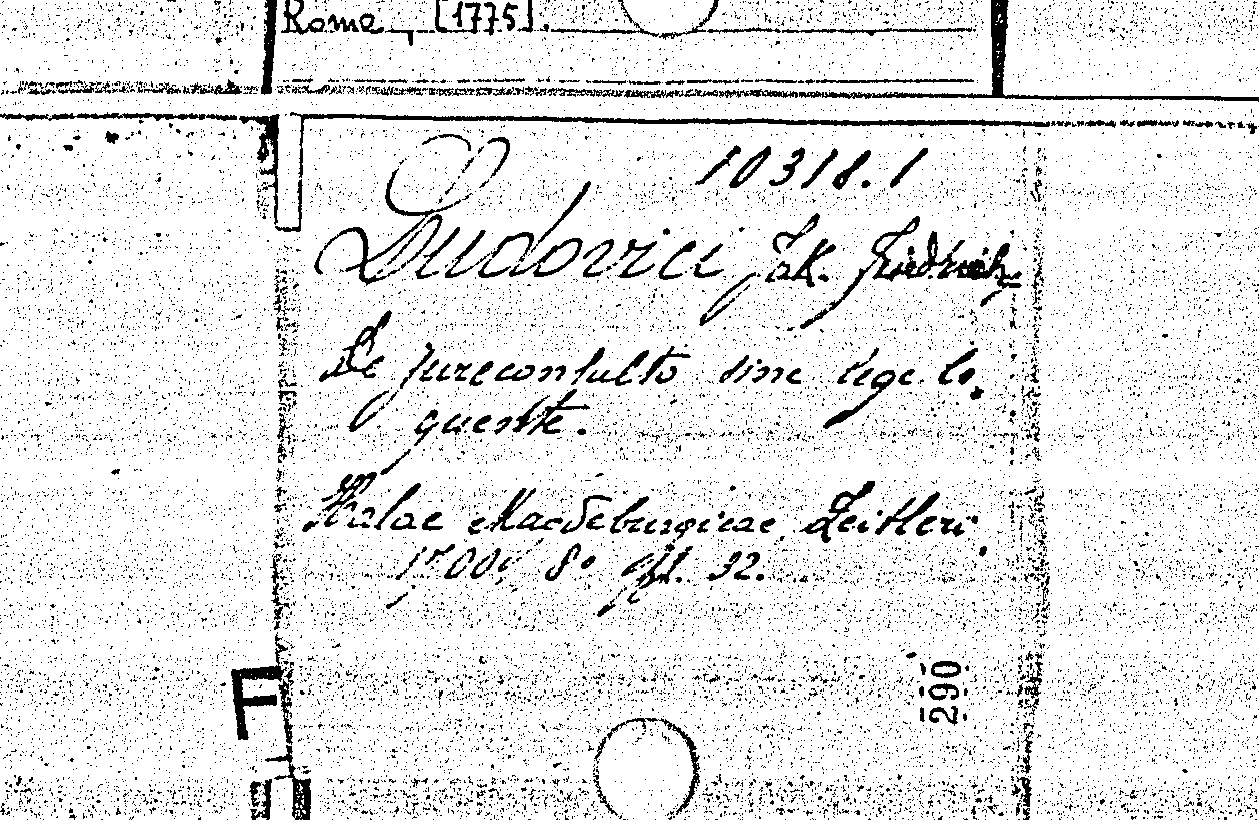 Rome, [1775].
10318.1
Ludovici Jak. Friedrich
De jureconsulto sine lege lo-
quente.
Halae Magdeburgicae, Zeitleri
1700, 8° 32.
290
F